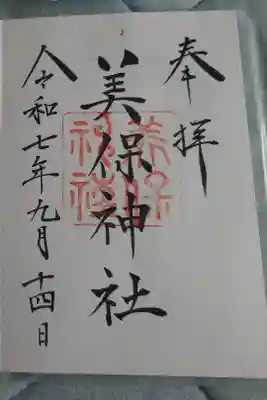 奉拝
美保神社
美保神社
令和七年九月十四日